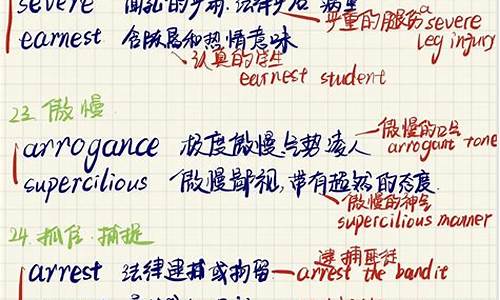 severe
严重的服伤 a severe
leg injury
earnest 含欣赏和热情意味
认真的学生
earnest student
23. 傲慢
arrogance 极度傲慢、气势凌人
傲慢的口气
arrogant tone
supercilious 傲慢鄙视，带有超然的态度
傲慢的神气
supercilious manner
24. 抓住、捕捉
arrest 法律逮捕或拘留
逮捕匪徒
arrest the bandit